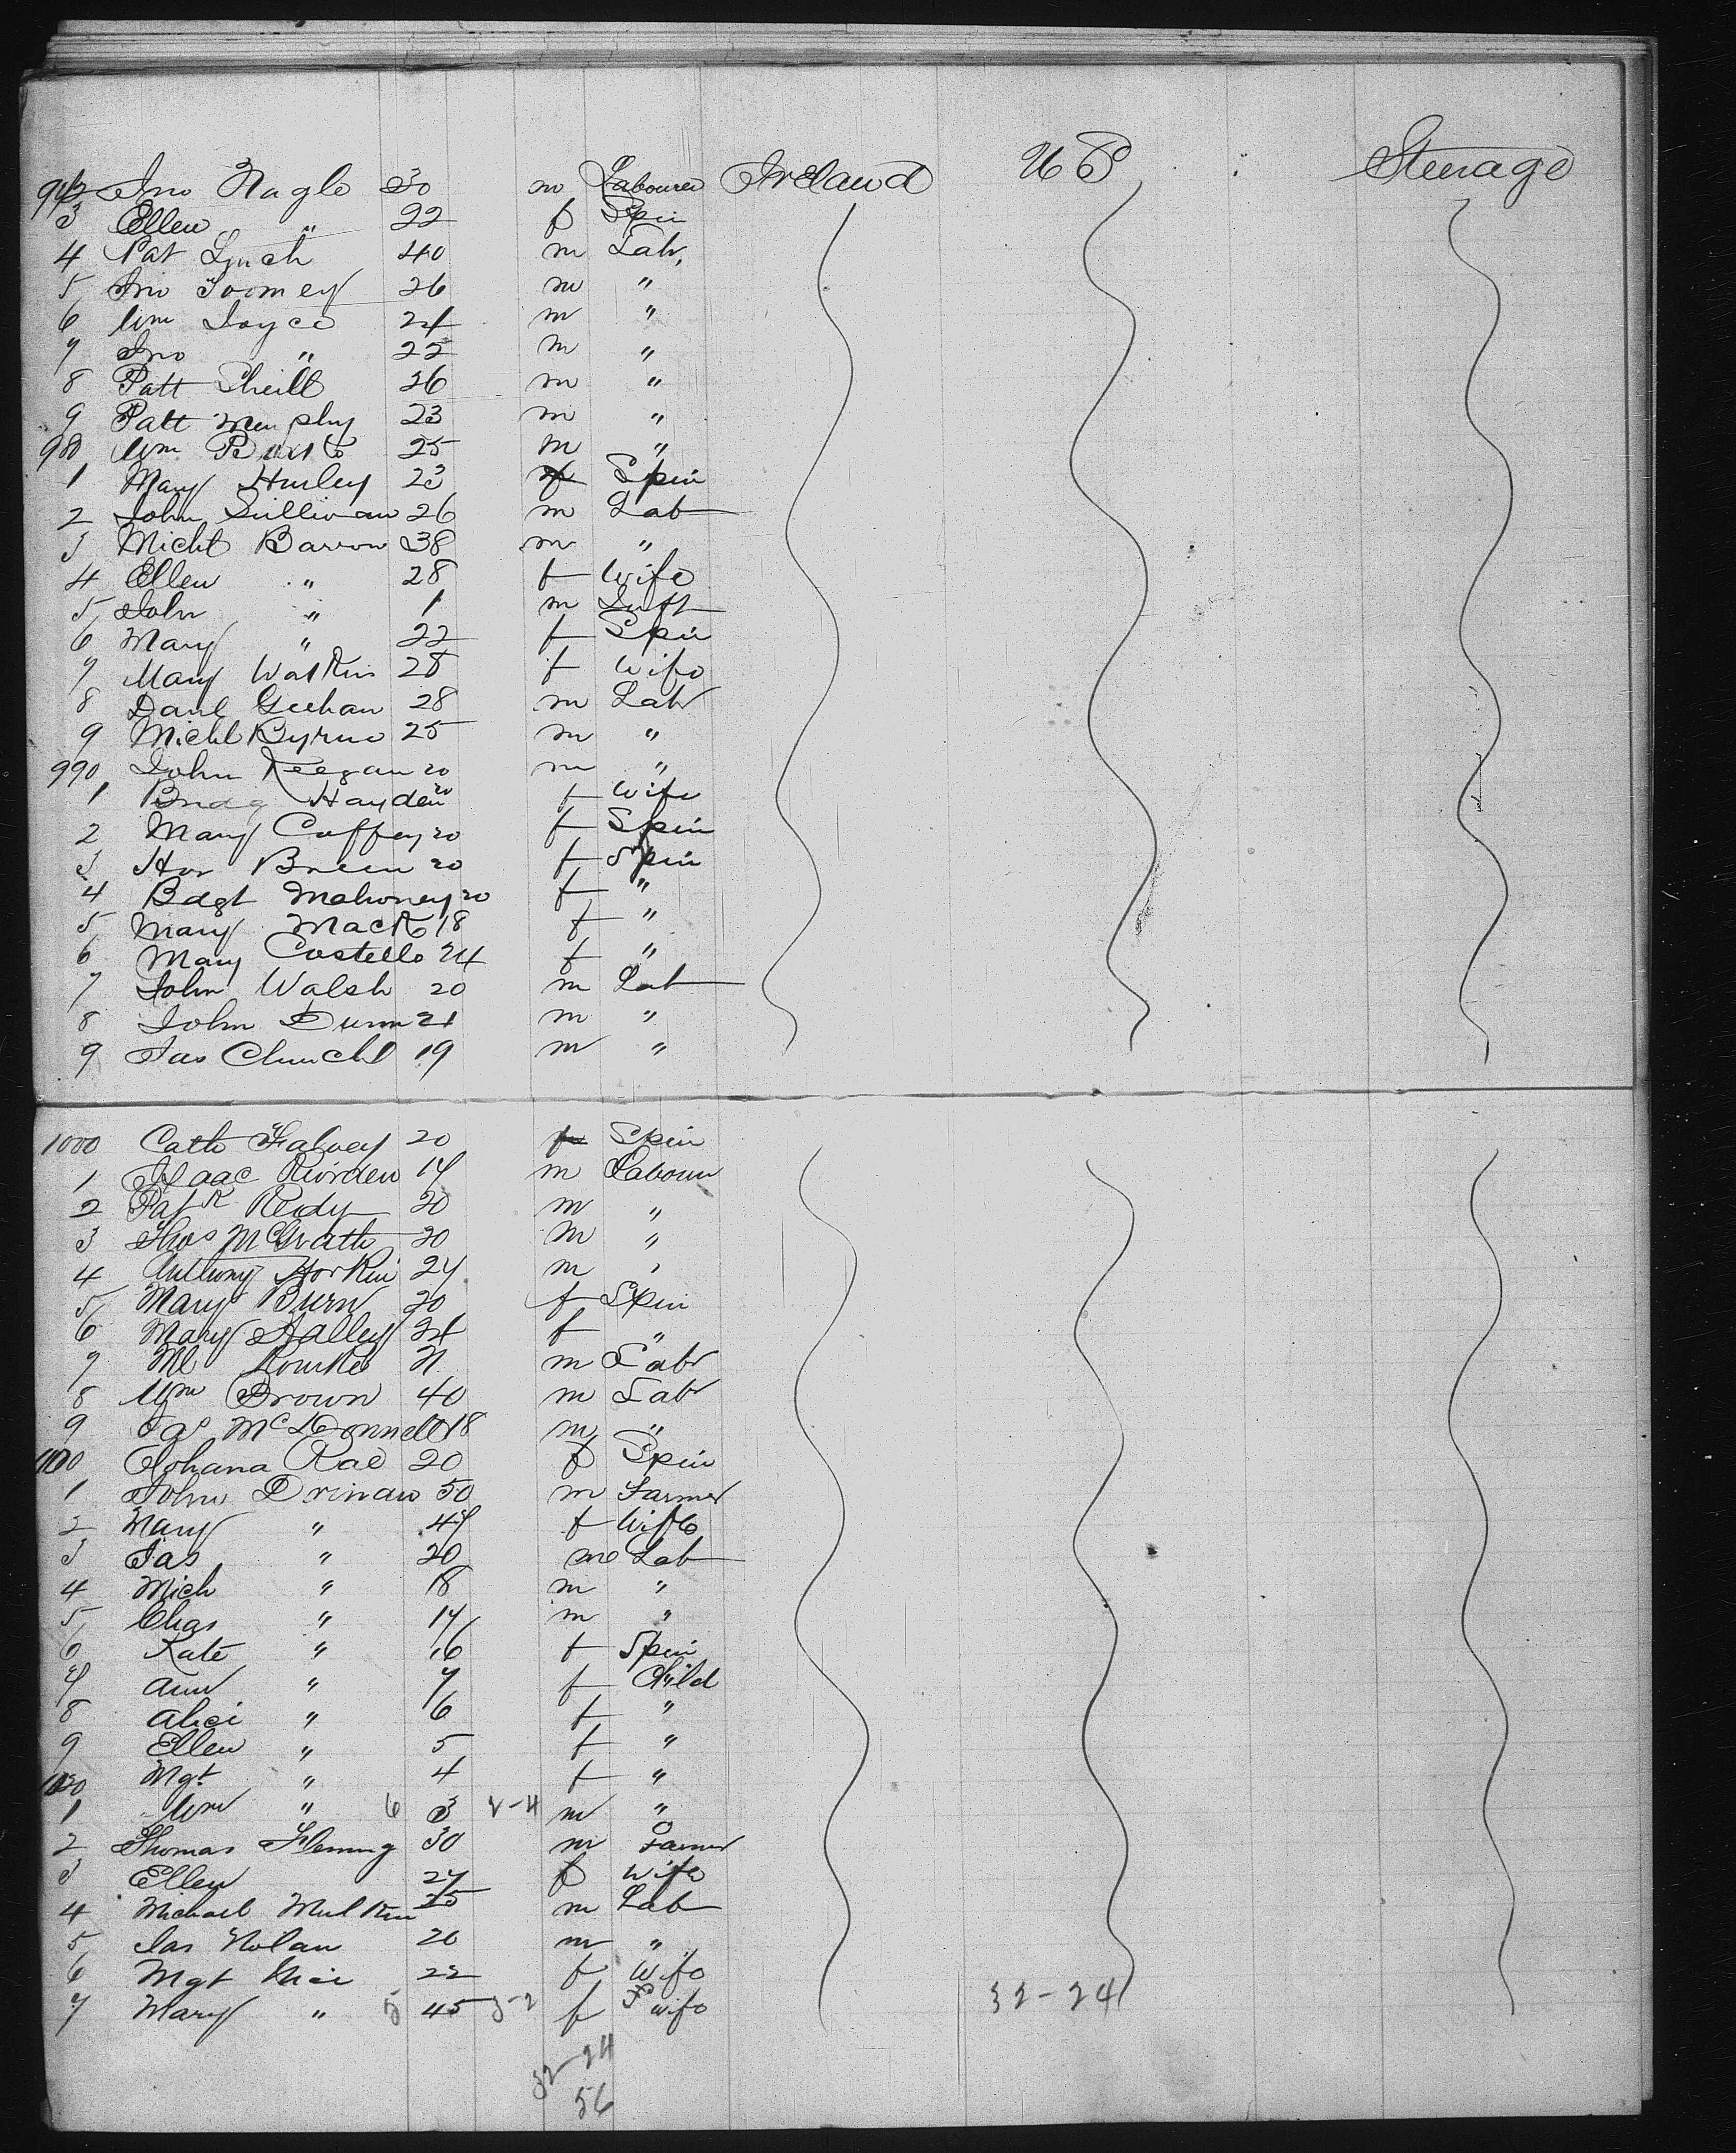 972 Jno Nagle 30 m Labourer Ireland US Steerage
3 Ellen " 22 f Spin
4 Pat Lynch 40 m Labr
5 Jno Toomey 26 m "
6 Wm Joyce 24 m "
7 Jno " 22 m "
8 Patt Sheill 26 m "
9 Patt Murphy 23 m "
980 Wm 25 m "
1 Mary Hurley 23 f Spin
2 John Sullivan 26 m Lab
3 Michl Barron 38 m "
4 Ellen " 28 f Wife
5 John " 1 m Inft
6 Mary " 22 f Spin
7 Mary Watkins 28 f Wife
8 Danl Geehan 28 m Labr
9 Michl Byrne 25 m "
990 John Keegan 20 m "
1 Bridg Hayden 20 f Wife
2 Mary Coffey 20 f Spin
3 Hon Breen 20 f Spin
4 Bdgt Mahoney 20 f "
5 Mary Mack 18 f "
6 Mary Costello 24 f "
7 John Walsh 20 m Lab
8 John Dunn 21 m "
9 Jas Churchl 19 m "
1000 Cath Falvey 20 f Spin
1 Isaac Riorden 17 m Labourer
2 Patk Redy 20 m "
3 Thos McGrath 20 m "
4 Anthony Horkin 24 m "
5 Mary Burn 20 f Spin
6 Mary Halley 24 f "
7 Ml Rourke 21 m Labr
8 Wm Brown 40 m Labr
9 Jas McDonnell 18 m "
1010 Johana Rae 20 f Spin
1 John Drinan 50 m Farmer
2 Mary " 47 f Wife
3 Jas " 20 m Lab
4 Mich " 18 m "
5 Chas " 17 m "
6 Kate " 16 f Spin
7 Ann " 7 f Child
8 Alice " 6 f "
9 Ellen " 5 f "
1020 Mgt " 4 f "
1 Wm " 6 3 2-4 m "
2 Thomas Fleming 30 m Farmer
3 Ellen 27 f Wife
4 Michael Mulkin 25 m Lab
5 Jas Nolan 20 m "
6 Mgt 22 f Wife
7 Mary " 5 45 3-2 f Wife 32-24
32-24
56